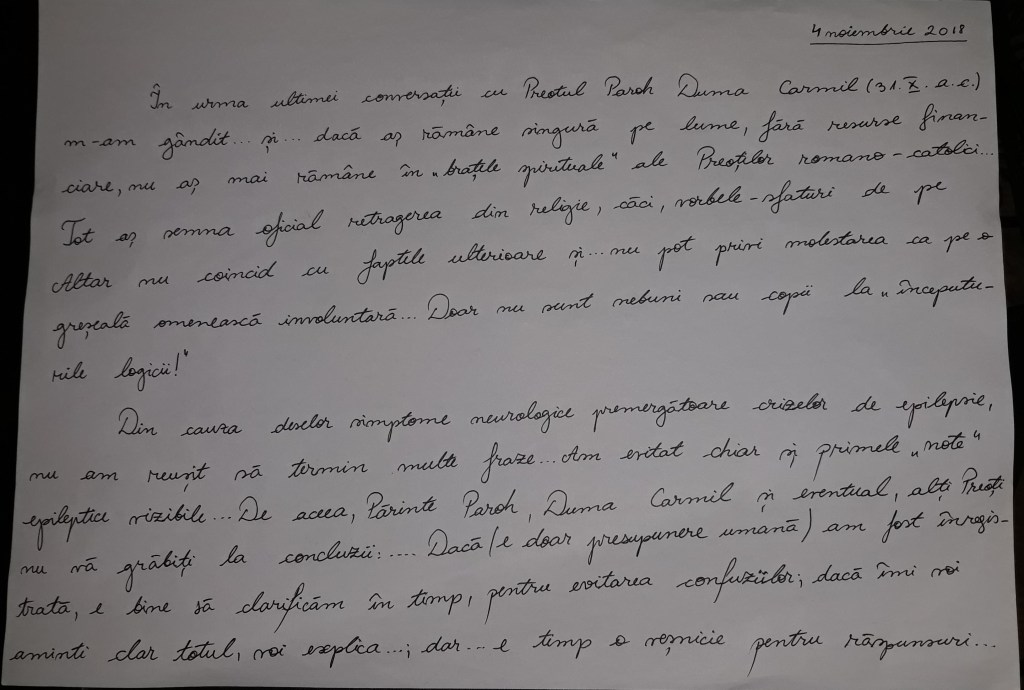 4 noiembrie 2018
În urma ultimei conversații cu Preotul Paroh Duma Carmil (31.X. a.c.)
m-am gândit... și... dacă aș rămâne singură pe lume, fără resurse finan-
ciare, nu aș mai rămâne în „brațele spirituale" ale Preoților romano-catolici...
Tot aș semna oficial retragerea din religie, căci, vorbele-sfaturi de pe
Altar nu coincid cu faptele ulterioare și... nu pot privi molestarea ca pe o
greșeală omenească involuntară... Doar nu sunt nebuni sau copii la „începutu-
rile logicii!"
Din cauza deselor simptome neurologice premergătoare crizelor de epilepsie,
nu am reușit să termin multe fraze... Am evitat chiar și primele „note"
epileptice vizibile... De aceea, Părinte Paroh, Duma Carmil și eventual, alți Preoți
nu vă grăbiți la concluzii:.... Dacă (e doar presupunere umană) am fost înregis-
trată, e bine să clarificăm în timp, pentru evitarea confuziilor; dacă îmi voi
aminti clar totul, voi explica...; dar... e timp o veșnicie pentru răspunsuri...